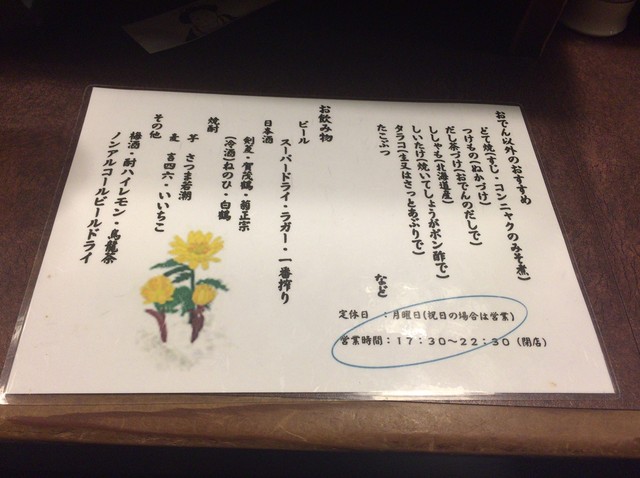 おでん以外のおすすめ
どて焼(すじ・コンニャクのみそ煮)
つけもの(ぬかづけ)
だし茶づけ(おでんのだしで)
ししゃも(北海道産)
しいたけ(焼いてしょうがポン酢で)
タラコ(生又はさっとあぶりで)
たこぶつ
など
お飲み物
ビール
スーパードライ・ラガー・一番搾り
日本酒
剣菱・賀茂鶴・菊正宗
(冷酒)ねのひ・白鶴
焼酎
芋 さつま若潮
麦 吉四六・いいちこ
その他
梅酒・酎ハイレモン・烏龍茶
ノンアルコールビールドライ
定休日 :月曜日(祝日の場合は営業)
営業時間:17:30~22:30(閉店)